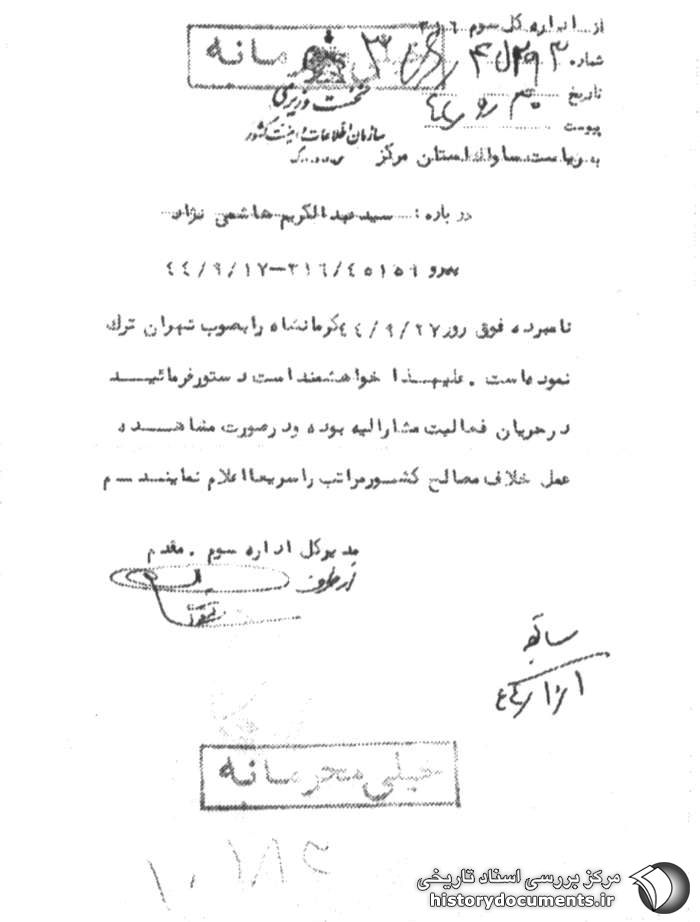 از اداره کل سوم ۳۱٦
شماره
تاریخ
پیوست
خیلی محرمانه
نخست وزیری
سازمان اطلاعات و امنیت کشور
س.ا.و.ا.ک
به ریاست ساواک استان مرکز
درباره : سید عبدالکریم هاشمی نژاد
پیرو ٤٥١٥٩/۳۱٦-٤٤/۹/۱۷
نامبرده فوق روز ٤٤/۹/۲۷ کرمانشاه را بصوب تهران ترک
نموده است . علیهذا خواهشمند است دستور فرمائیـــد
در جریان فعالیت مشارالیه بوده و در صورت مشاهــــده
عمل خلاف مصالح کشـور مراتب را سریعا اعلام نماینـــد م
مدیر کل اداره سوم . مقدم
از طرف
سابقه
خیلی محرمانه
مرکز بررسی اسناد تاریخی
historydocuments.ir